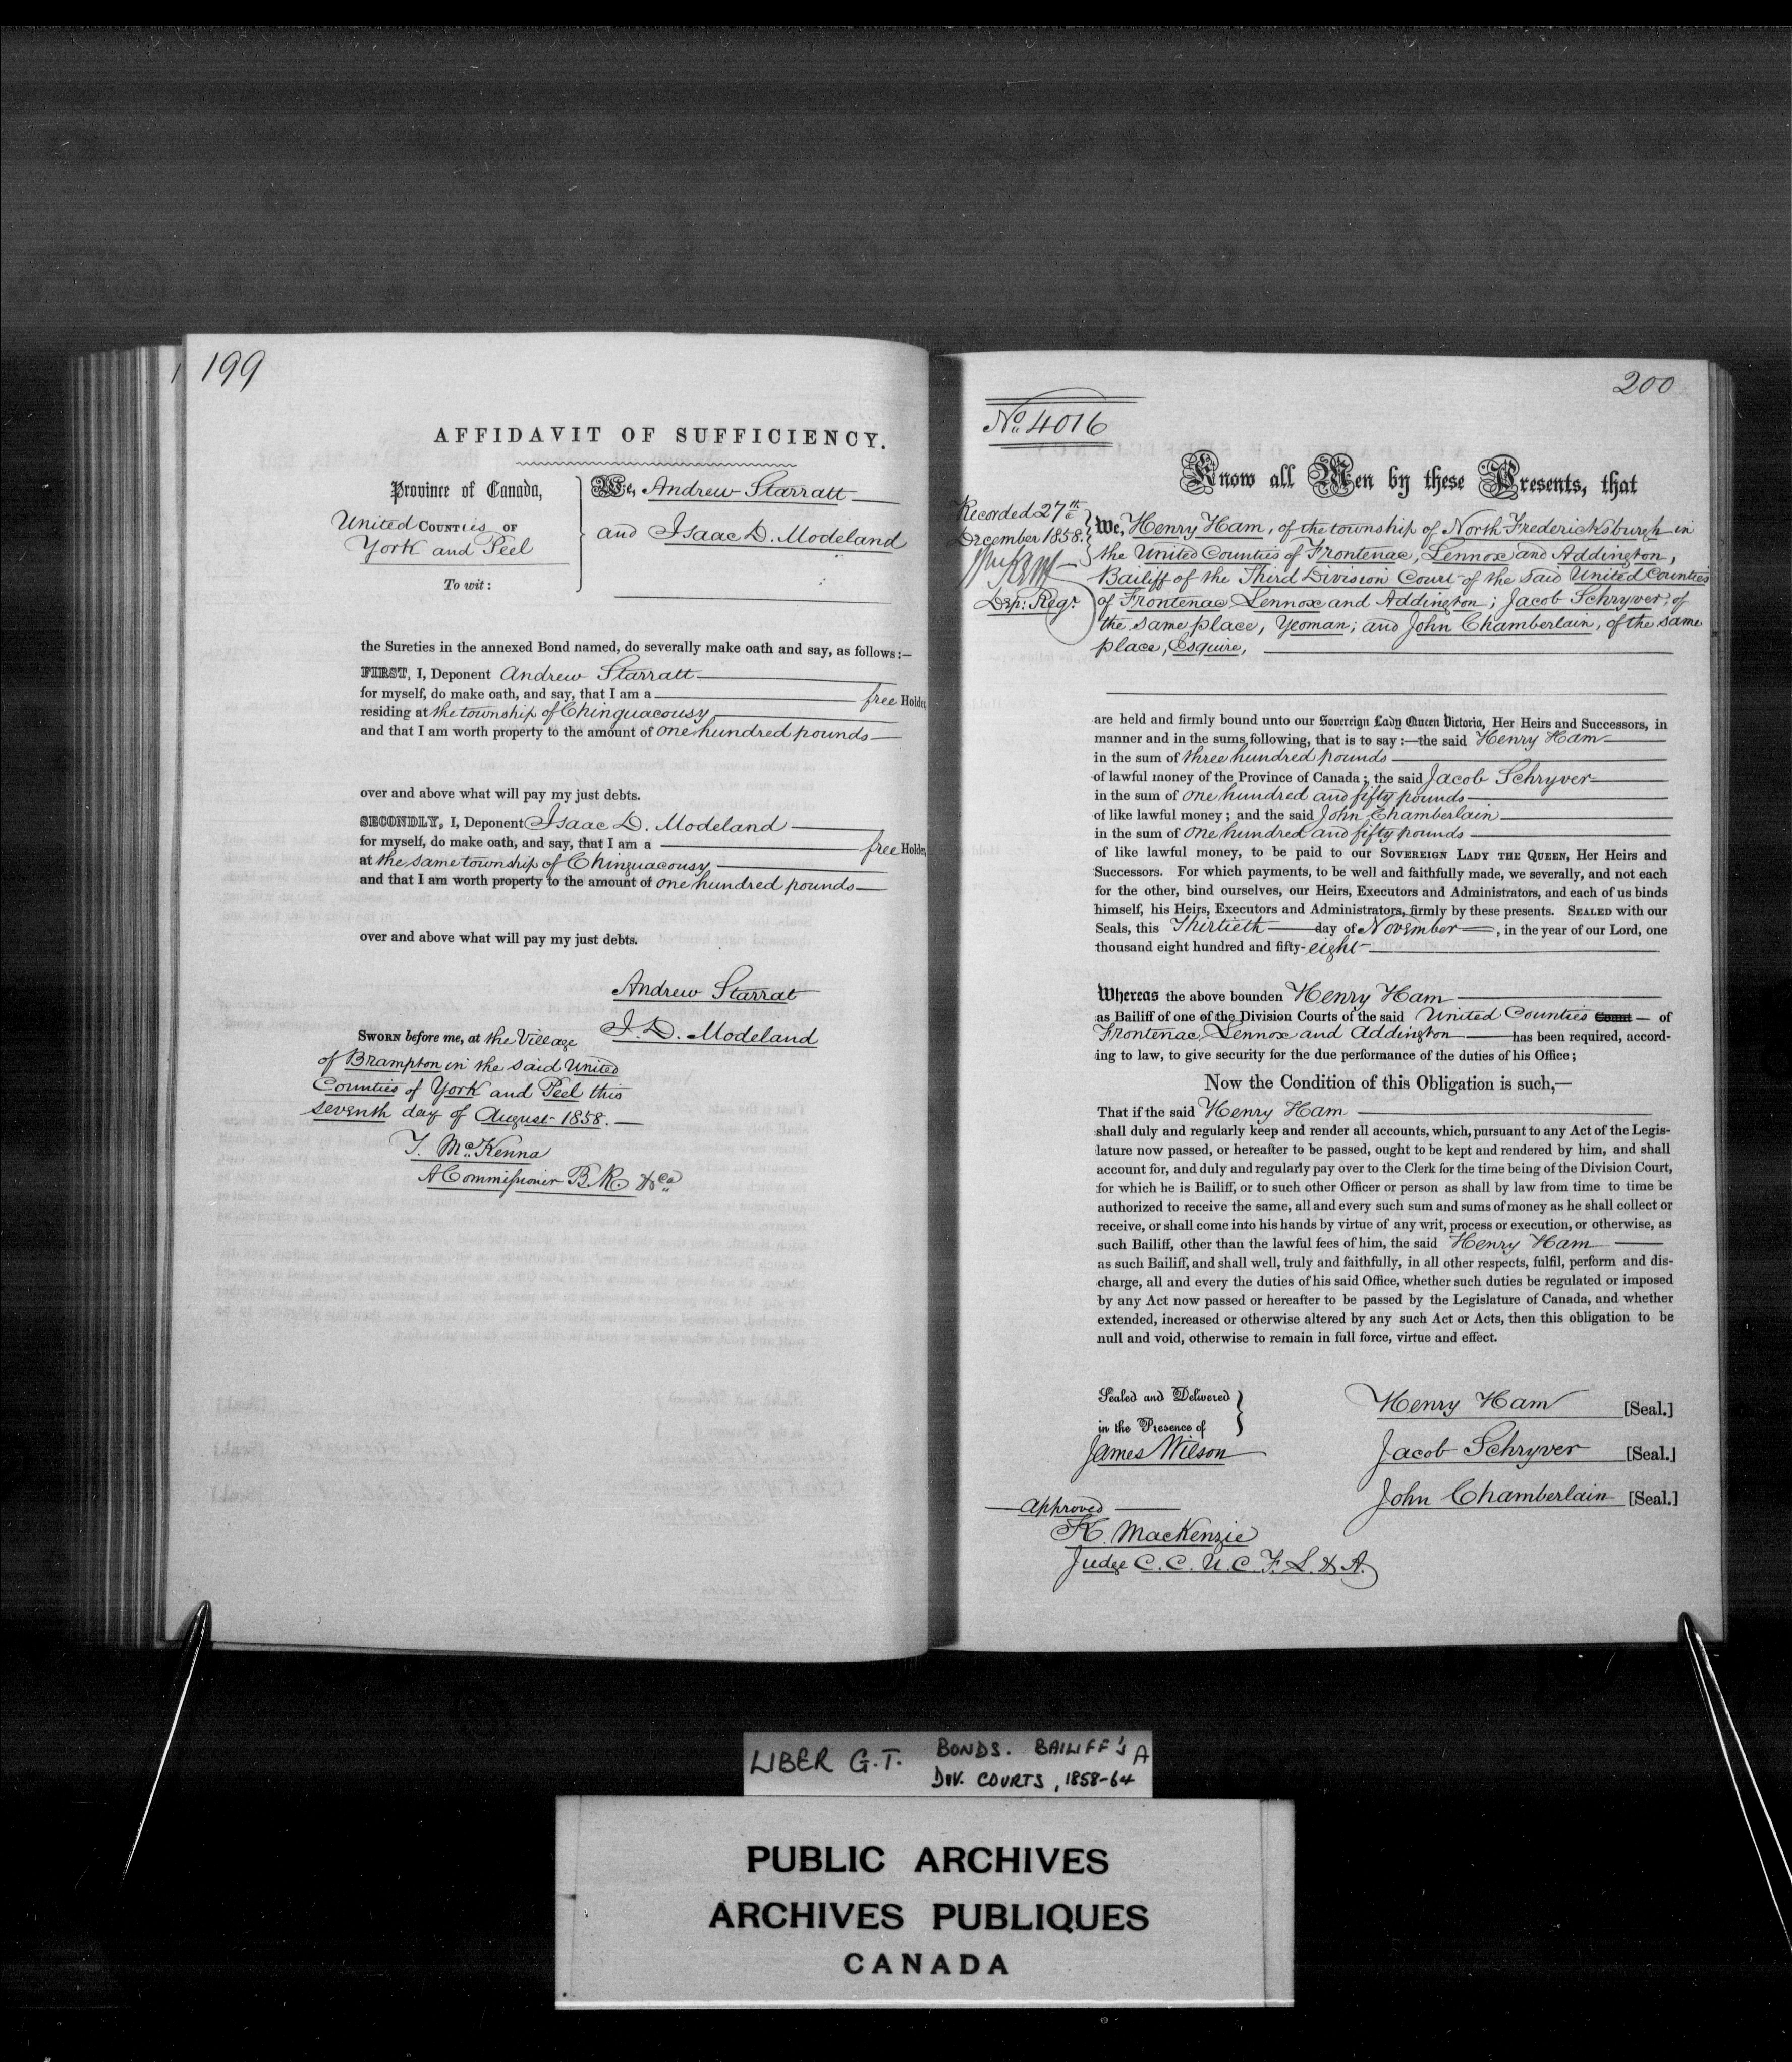 199
AFFIDAVIT OF SUFFICIENCY.
Province of Canada,
United COUNTies OF
York and Peel
To wit:
We, Andrew Starratt
and Isaac D. Modeland
the Sureties in the annexed Bond named, do severally make oath and say, as follows:—
FIRST, I, Deponent Andrew Starratt
for myself, do make oath, and say, that I am a free Holder,
residing at the township of Chinguacousy
and that I am worth property to the amount of one hundred pounds
over and above what will pay my just debts.
SECONDLY, I, Deponent Isaac D. Modeland
for myself, do make oath, and say, that I am a free Holder,
at the same township of Chinguacousy
and that I am worth property to the amount of one hundred pounds
over and above what will pay my just debts.
Andrew Starrat
I. D. Modeland
SWORN before me, at the Village
of Brampton in the said United
Counties of York and Peel this
seventh day of August 1858.
T. McKenna
A Commissioner B.R. &ca
200
No. 4016
Know all Men by these Presents, that
Recorded 27th
December 1858.
Dep: Regr.
We, Henry Ham, of the township of North Fredericksburgh in
the United Counties of Frontenac, Lennox and Addington,
Bailiff of the Third Division Court of the said United Counties
of Frontenac, Lennox and Addington; Jacob Schryver, of
the same place, Yeoman; and John Chamberlain, of the same
place, Esquire,
are held and firmly bound unto our Sovereign Lady Queen Victoria, Her Heirs and Successors, in
manner and in the sums following, that is to say:—the said Henry Ham
in the sum of three hundred pounds
of lawful money of the Province of Canada; the said Jacob Schryver
in the sum of one hundred and fifty pounds
of like lawful money; and the said John Chamberlain
in the sum of one hundred and fifty pounds
of like lawful money, to be paid to our SOVEREIGN LADY THE QUEEN, Her Heirs and
Successors. For which payments, to be well and faithfully made, we severally, and not each
for the other, bind ourselves, our Heirs, Executors and Administrators, and each of us binds
himself, his Heirs, Executors and Administrators, firmly by these presents. SEALED with our
Seals, this Thirtieth day of November, in the year of our Lord, one
thousand eight hundred and fifty-eight
Whereas the above bounden Henry Ham
as Bailiff of one of the Division Courts of the said United Counties Count of
Frontenac, Lennox and Addington has been required, accord-
ing to law, to give security for the due performance of the duties of his Office;
Now the Condition of this Obligation is such,—
That if the said Henry Ham
shall duly and regularly keep and render all accounts, which, pursuant to any Act of the Legis-
lature now passed, or hereafter to be passed, ought to be kept and rendered by him, and shall
account for, and duly and regularly pay over to the Clerk for the time being of the Division Court,
for which he is Bailiff, or to such other Officer or person as shall by law from time to time be
authorized to receive the same, all and every such sum and sums of money as he shall collect or
receive, or shall come into his hands by virtue of any writ, process or execution, or otherwise, as
such Bailiff, other than the lawful fees of him, the said Henry Ham
as such Bailiff, and shall well, truly and faithfully, in all other respects, fulfil, perform and dis-
charge, all and every the duties of his said Office, whether such duties be regulated or imposed
by any Act now passed or hereafter to be passed by the Legislature of Canada, and whether
extended, increased or otherwise altered by any such Act or Acts, then this obligation to be
null and void, otherwise to remain in full force, virtue and effect.
Sealed and Delivered
in the Presence of
James Wilson
Henry Ham [Seal.]
Jacob Schryver [Seal.]
John Chamberlain [Seal.]
Approved
K. MacKenzie
Judge C. C. U. C. F. L. & A.
LIBER G.T. BONDS. BAILIFF'S A
DIV. COURTS, 1858-64
PUBLIC ARCHIVES
ARCHIVES PUBLIQUES
CANADA